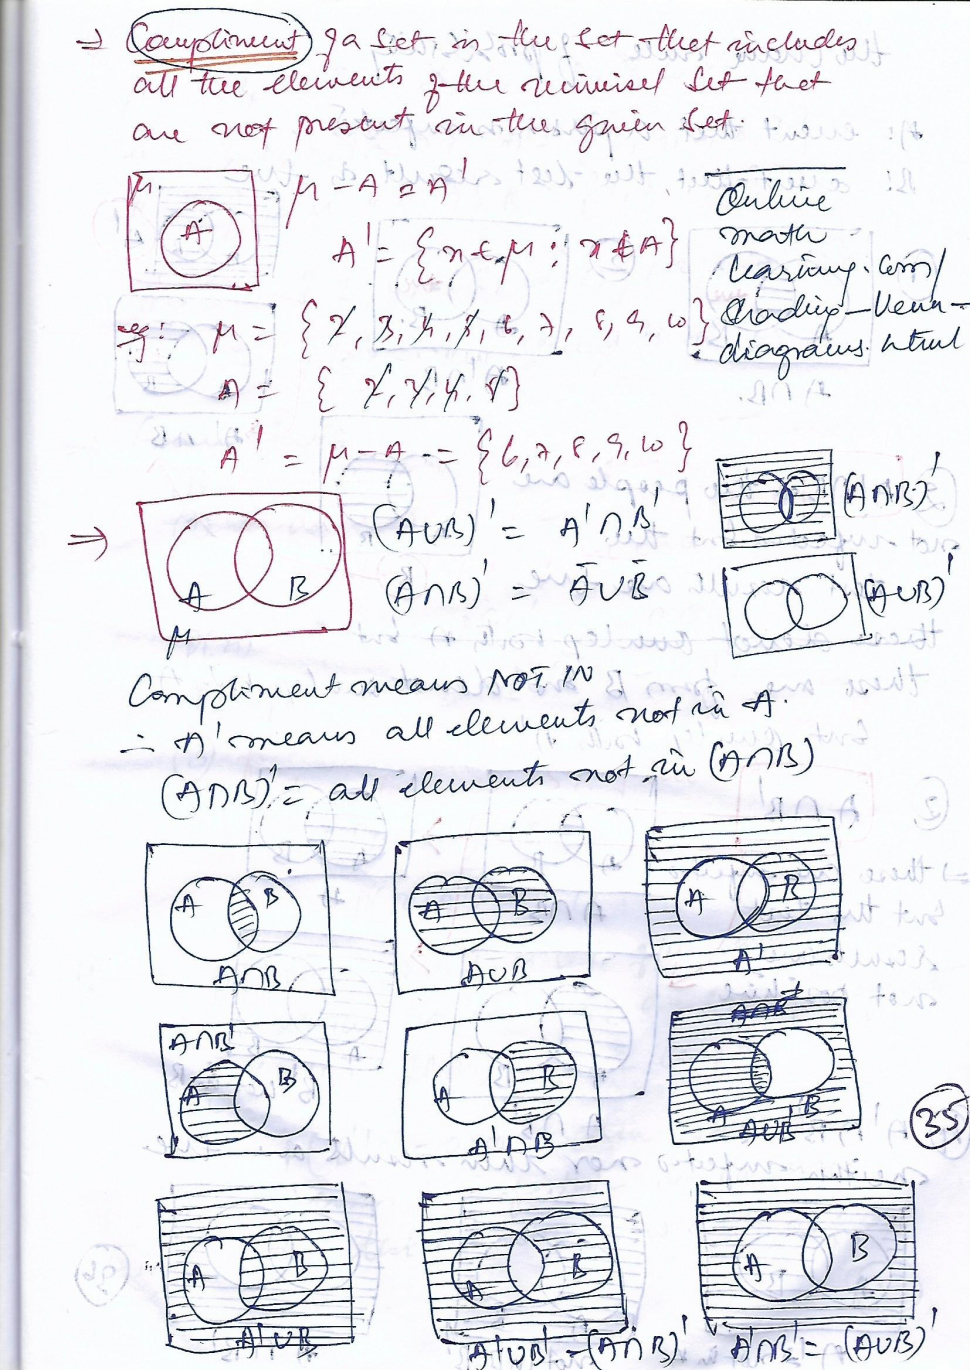 → Compliment of a set is the set that includes
all the elements of the universal set that
are not present in the given set.
μ
A
μ - A = A'
A' = {x ∈ μ : x ∉ A}
Online
math
learning.com/
shading-Venn-
diagrams.html
eg: μ = {2, 3, 4, 5, 6, 7, 8, 9, 10}
A = {2, 3, 4, 5}
A' = μ - A = {6, 7, 8, 9, 10}
(A∩B)'
⇒
A B
μ
(A∪B)' = A'∩B'
(A∩B)' = A̅∪B̅
(A∪B)'
Compliment means NOT IN
∴ A' means all elements not in A.
(A∩B)' = all elements not in (A∩B)
A B
A∩B
A B
A∪B
A B
A'
A∩B'
A B
A B
A'∩B
A∩B'
A B
A∪B'
35
A B
A'∪B
A B
A'∪B' = (A∩B)'
A B
A'∩B' = (A∪B)'